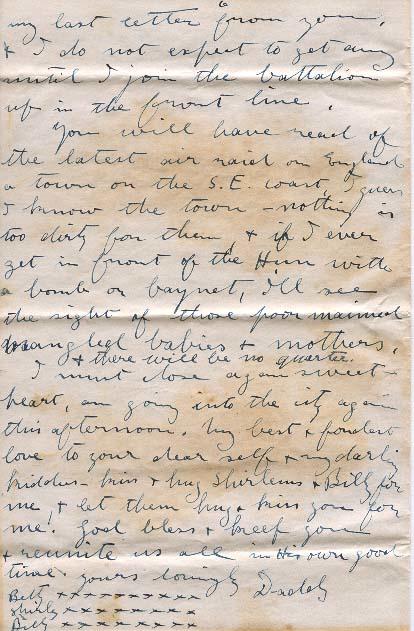 my last letter from you,
& I do not expect to get any
until I join the battalion
up in the front line.
You will have read of
the latest air raid on England
a town on the S.E. coast, I guess
I know the town - nothing is
too dirty for them, & if I ever
get in front of the Hun with
a bomb or baynet, I'll see
the sight of those poor maimed
mangled babies & mothers,
& there will be no quarter.
I must close again sweet-
heart, am going into the city again
this afternoon. My best & fondest
love to your dear self & my darling
kiddies - kiss & hug Shirleins & Billy for
me, & let them hug & kiss you for
me. God bless & keep you
& reunite us all in His own good
time. Yours lovingly Daddy
Betty x x x x x x x x x
Shirley x x x x x x x x
Billy x x x x x x x x